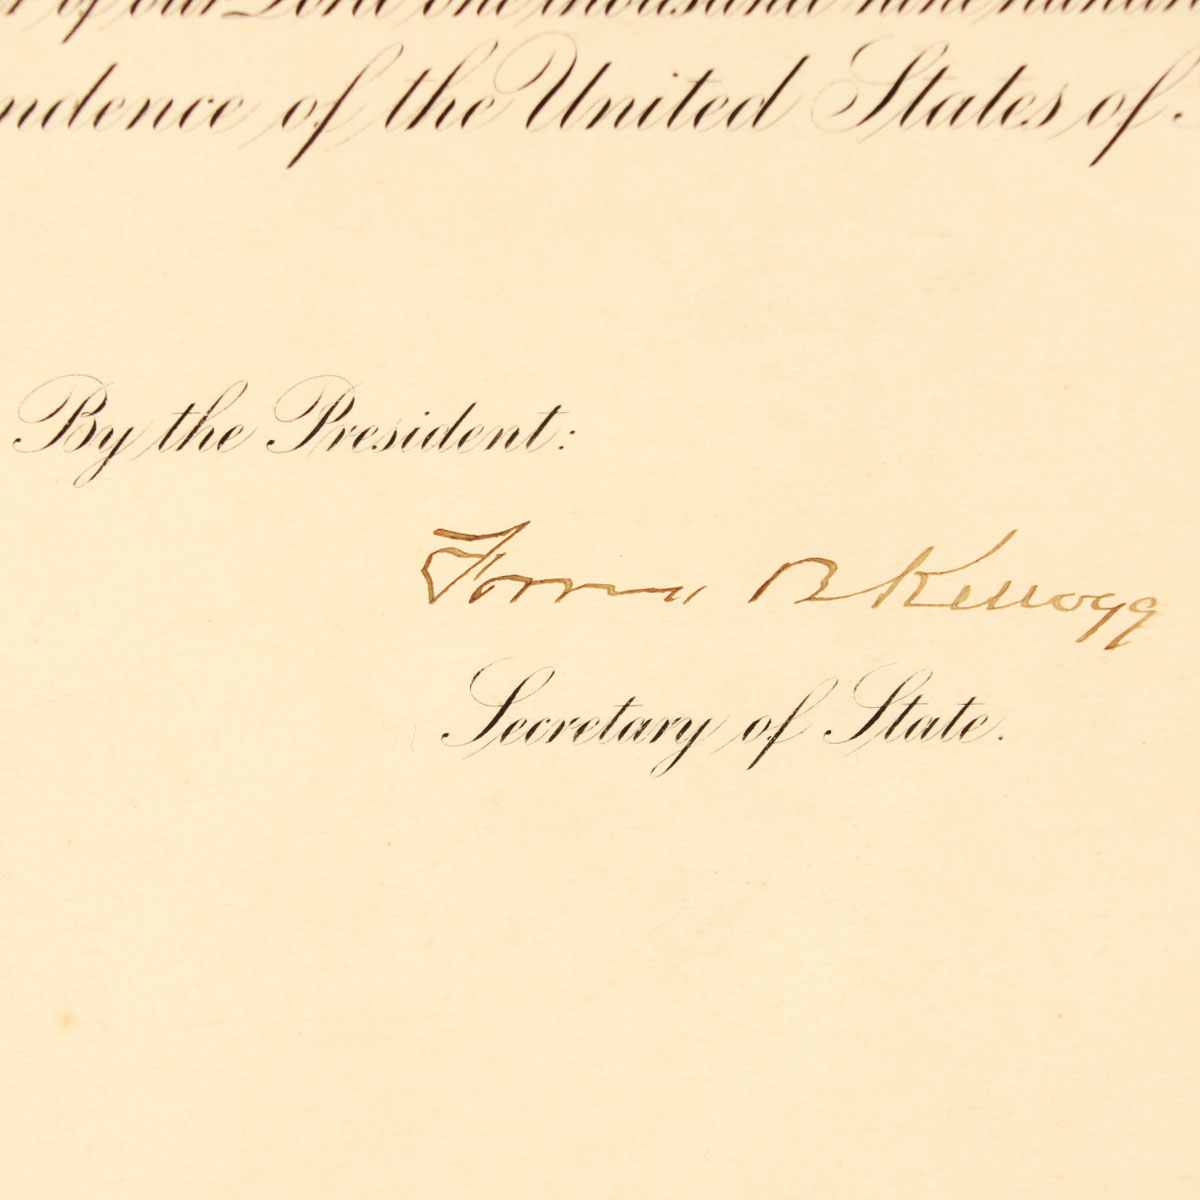 of our Lord one thousand nine hundred
ndence of the United States of
By the President:
Frank B Kellogg
Secretary of State.